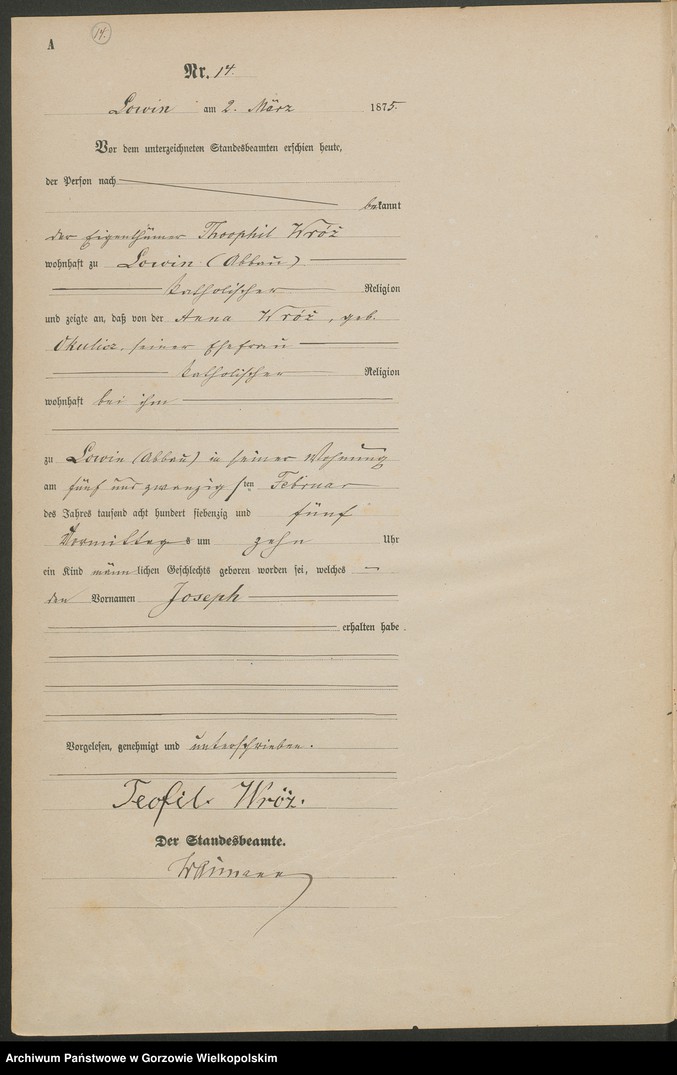 A
14.
Nr. 14.
Lowin am 2. März 1875.
Vor dem unterzeichneten Standesbeamten erschien heute,
der Person nach
bekannt
der Eigenthümer Theophil Wróż
wohnhaft zu Lowin (Abbau)
katholischer Religion
und zeigte an, daß von der Anna Wróż, geb.
Okulicz, seiner Ehefrau
katholischer Religion
wohnhaft bei ihm
zu Lowin (Abbau) in seiner Wohnung
am fünf und zwanzigsten Februar
des Jahres tausend acht hundert siebenzig und fünf
Vormittags um zehn Uhr
ein Kind männlichen Geschlechts geboren worden sei, welches
den Vornamen Joseph
erhalten habe.
Vorgelesen, genehmigt und unterschrieben.
Teofil Wróż.
Der Standesbeamte.
Archiwum Państwowe w Gorzowie Wielkopolskim